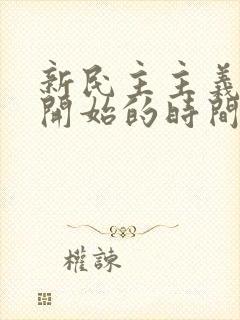 新民主主義
開始的時間
權諫